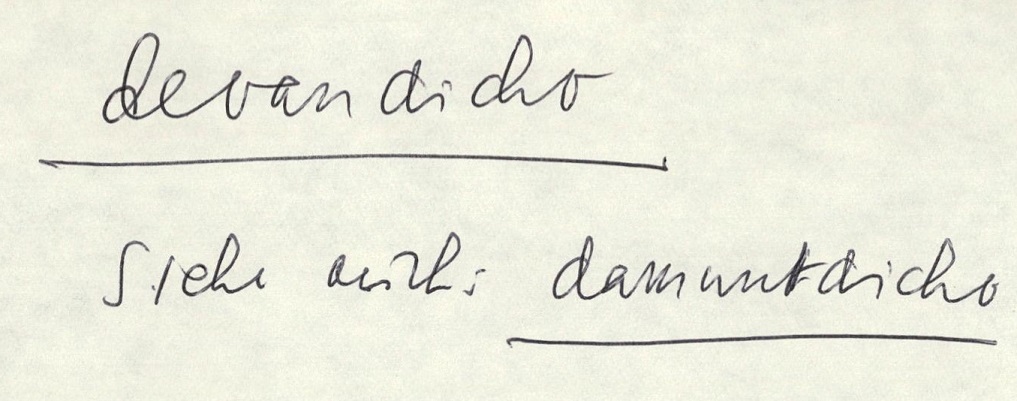 devandicho
Siehe auch: damuntdicho